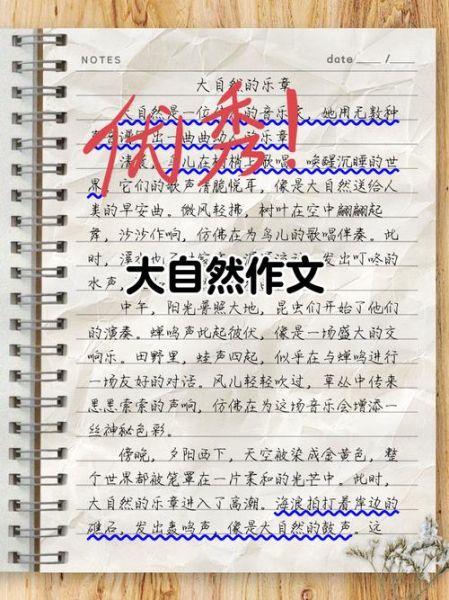 NOTES
date ____ /____
大自然的乐章
大自然是一位的音乐家，她用无数种
出一曲曲动人的乐章
清晨，鸟儿在枝梢上歌唱，唤醒沉睡的世
界。它们的歌声清脆悦耳，像是大自然送给人
类的早安曲。微风轻拂，树叶在空中翩翩起
舞，沙沙作响，仿佛在为鸟儿的歌唱伴奏。此
时，发出叮咚的
水声，
优秀！
大自然作文
中午，阳光普照大地，昆虫们开始了他们
的演奏。蝉鸣声此起彼伏，像是一场盛大的交
响乐。田野里，蛙声四起，似乎在与蝉鸣进行
一场友好的对话。风儿轻轻吹过，草丛中传来
悉悉索索的声响，仿佛在为这场音乐会增添一
丝神秘色彩。
傍晚，夕阳西下，天空被染成金黄色，整
个世界都被笼罩在一片柔和的光芒中。此时，
大自然的乐章进入了高潮。海浪拍打着岸边的
礁石，发出轰鸣声，像是大自然的鼓声。这